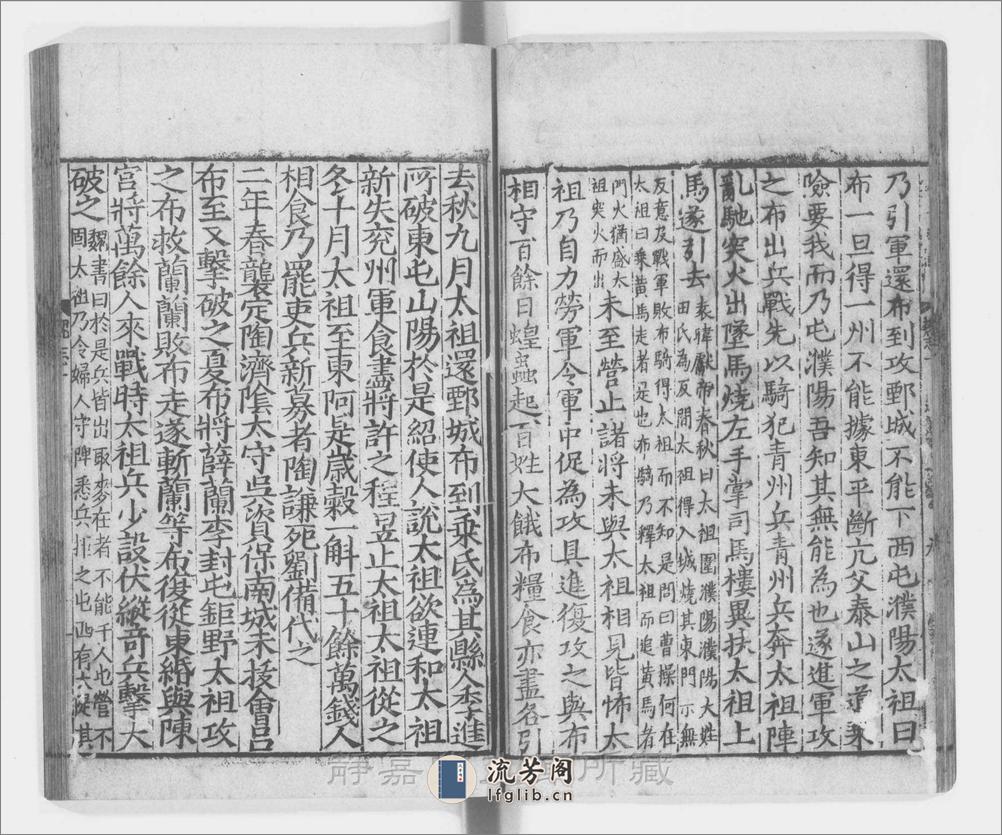 乃引軍還布到攻鄄城不能下西屯濮陽太祖曰
布一旦得一州不能據東平斷亢父泰山之道乘
險要我而乃屯濮陽吾知其無能為也遂進軍攻
之布出兵戰先以騎犯青州兵青州兵奔太祖陣
亂馳突火出墜馬燒左手掌司馬樓異扶太祖上
馬遂引去
袁暐獻帝春秋曰太祖圍濮陽濮陽大姓
田氏為反間太祖得入城燒其東門示無
反意及戰軍敗布騎得太祖而不知是問曰曹操何在
太祖曰乘黃馬走者是也布騎乃釋太祖而追黃馬者
門火猶盛太
祖突火而出
未至營止諸將未與太祖相見皆怖太
祖乃自力勞軍令軍中促為攻具進復攻之與布
相守百餘日蝗蟲起百姓大餓布糧食亦盡各引
去秋九月太祖還鄄城布到乘氏為其縣人李進
所破東屯山陽於是紹使人說太祖欲連和太祖
新失兖州軍食盡將許之程昱止太祖太祖從之
冬十月太祖至東阿是歲穀一斛五十餘萬錢人
相食乃罷吏兵新募者陶謙死劉備代之
二年春襲定陶濟陰太守吳資保南城未拔會呂
布至又擊破之夏布將薛蘭李封屯鉅野太祖攻
之布救蘭蘭敗布走遂斬蘭等布復從東緡與陳
宮將萬餘人來戰時太祖兵少設伏縱奇兵擊大
破之
魏書曰於是兵皆出取麥在者不能千人屯營不
固太祖乃令婦人守陴悉兵拒之屯西有大隄其
靜嘉 所藏
流芳阁
lfglib.cn